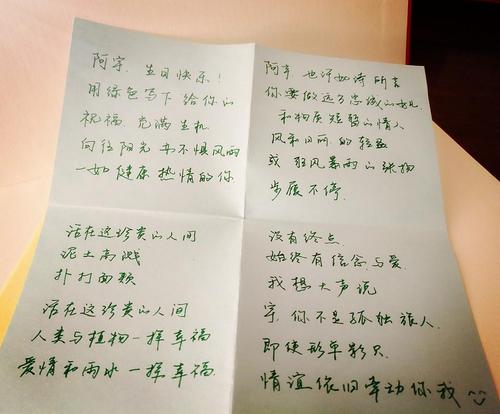 阿宇，生日快乐！
用绿色写下给你的
祝福 充满生机
向往阳光 也不惧风雨
一如健康 热情的你
活在这珍贵的人间
泥土高溅
扑打面颊
活在这珍贵的人间
人类与植物一样幸福
爱情和雨水一样幸福
阿宇 也许如诗所言
你要做远方忠诚的女儿
和物质短暂的情人
风和日丽 的轻盈
或 狂风暴雨的张扬
步履不停
没有终点
始终有信念与爱
我想大声说
宇，你不是孤独旅人
即使形单影只
情谊依旧牵动你我